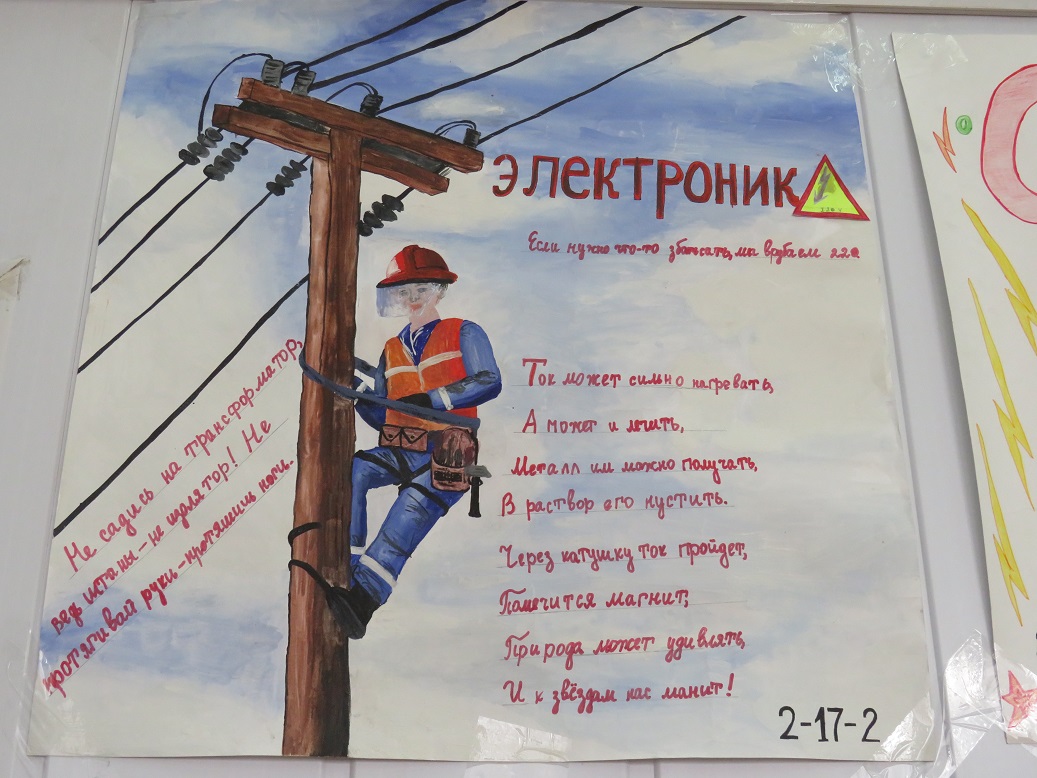 ЭЛЕКТРОНИК
Если нужно что-то збацать, мы врубаем 220
Ток может сильно нагревать,
А может и лечить,
Металл им можно получать,
В раствор его пустить.
Через катушку ток пройдет,
Получится магнит,
Природа может удивлять,
И к звёздам нас манит!
Не садись на трансформатор,
ведь штаны - не изолятор! Не
протягивай руки - протянешь ноги.
2-17-2